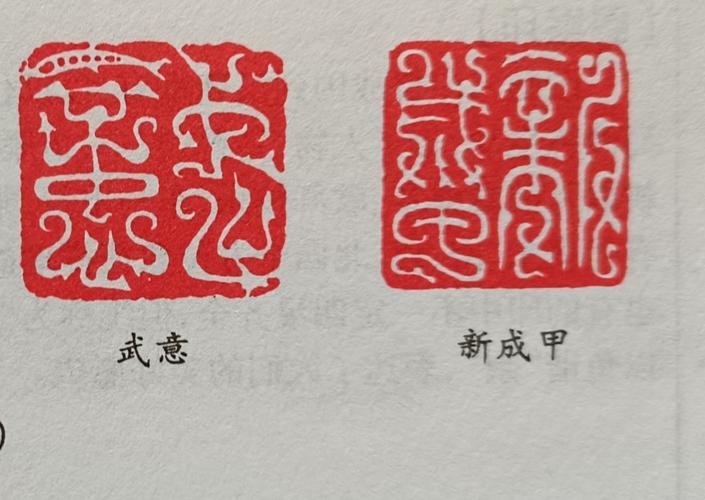 武意
新成甲